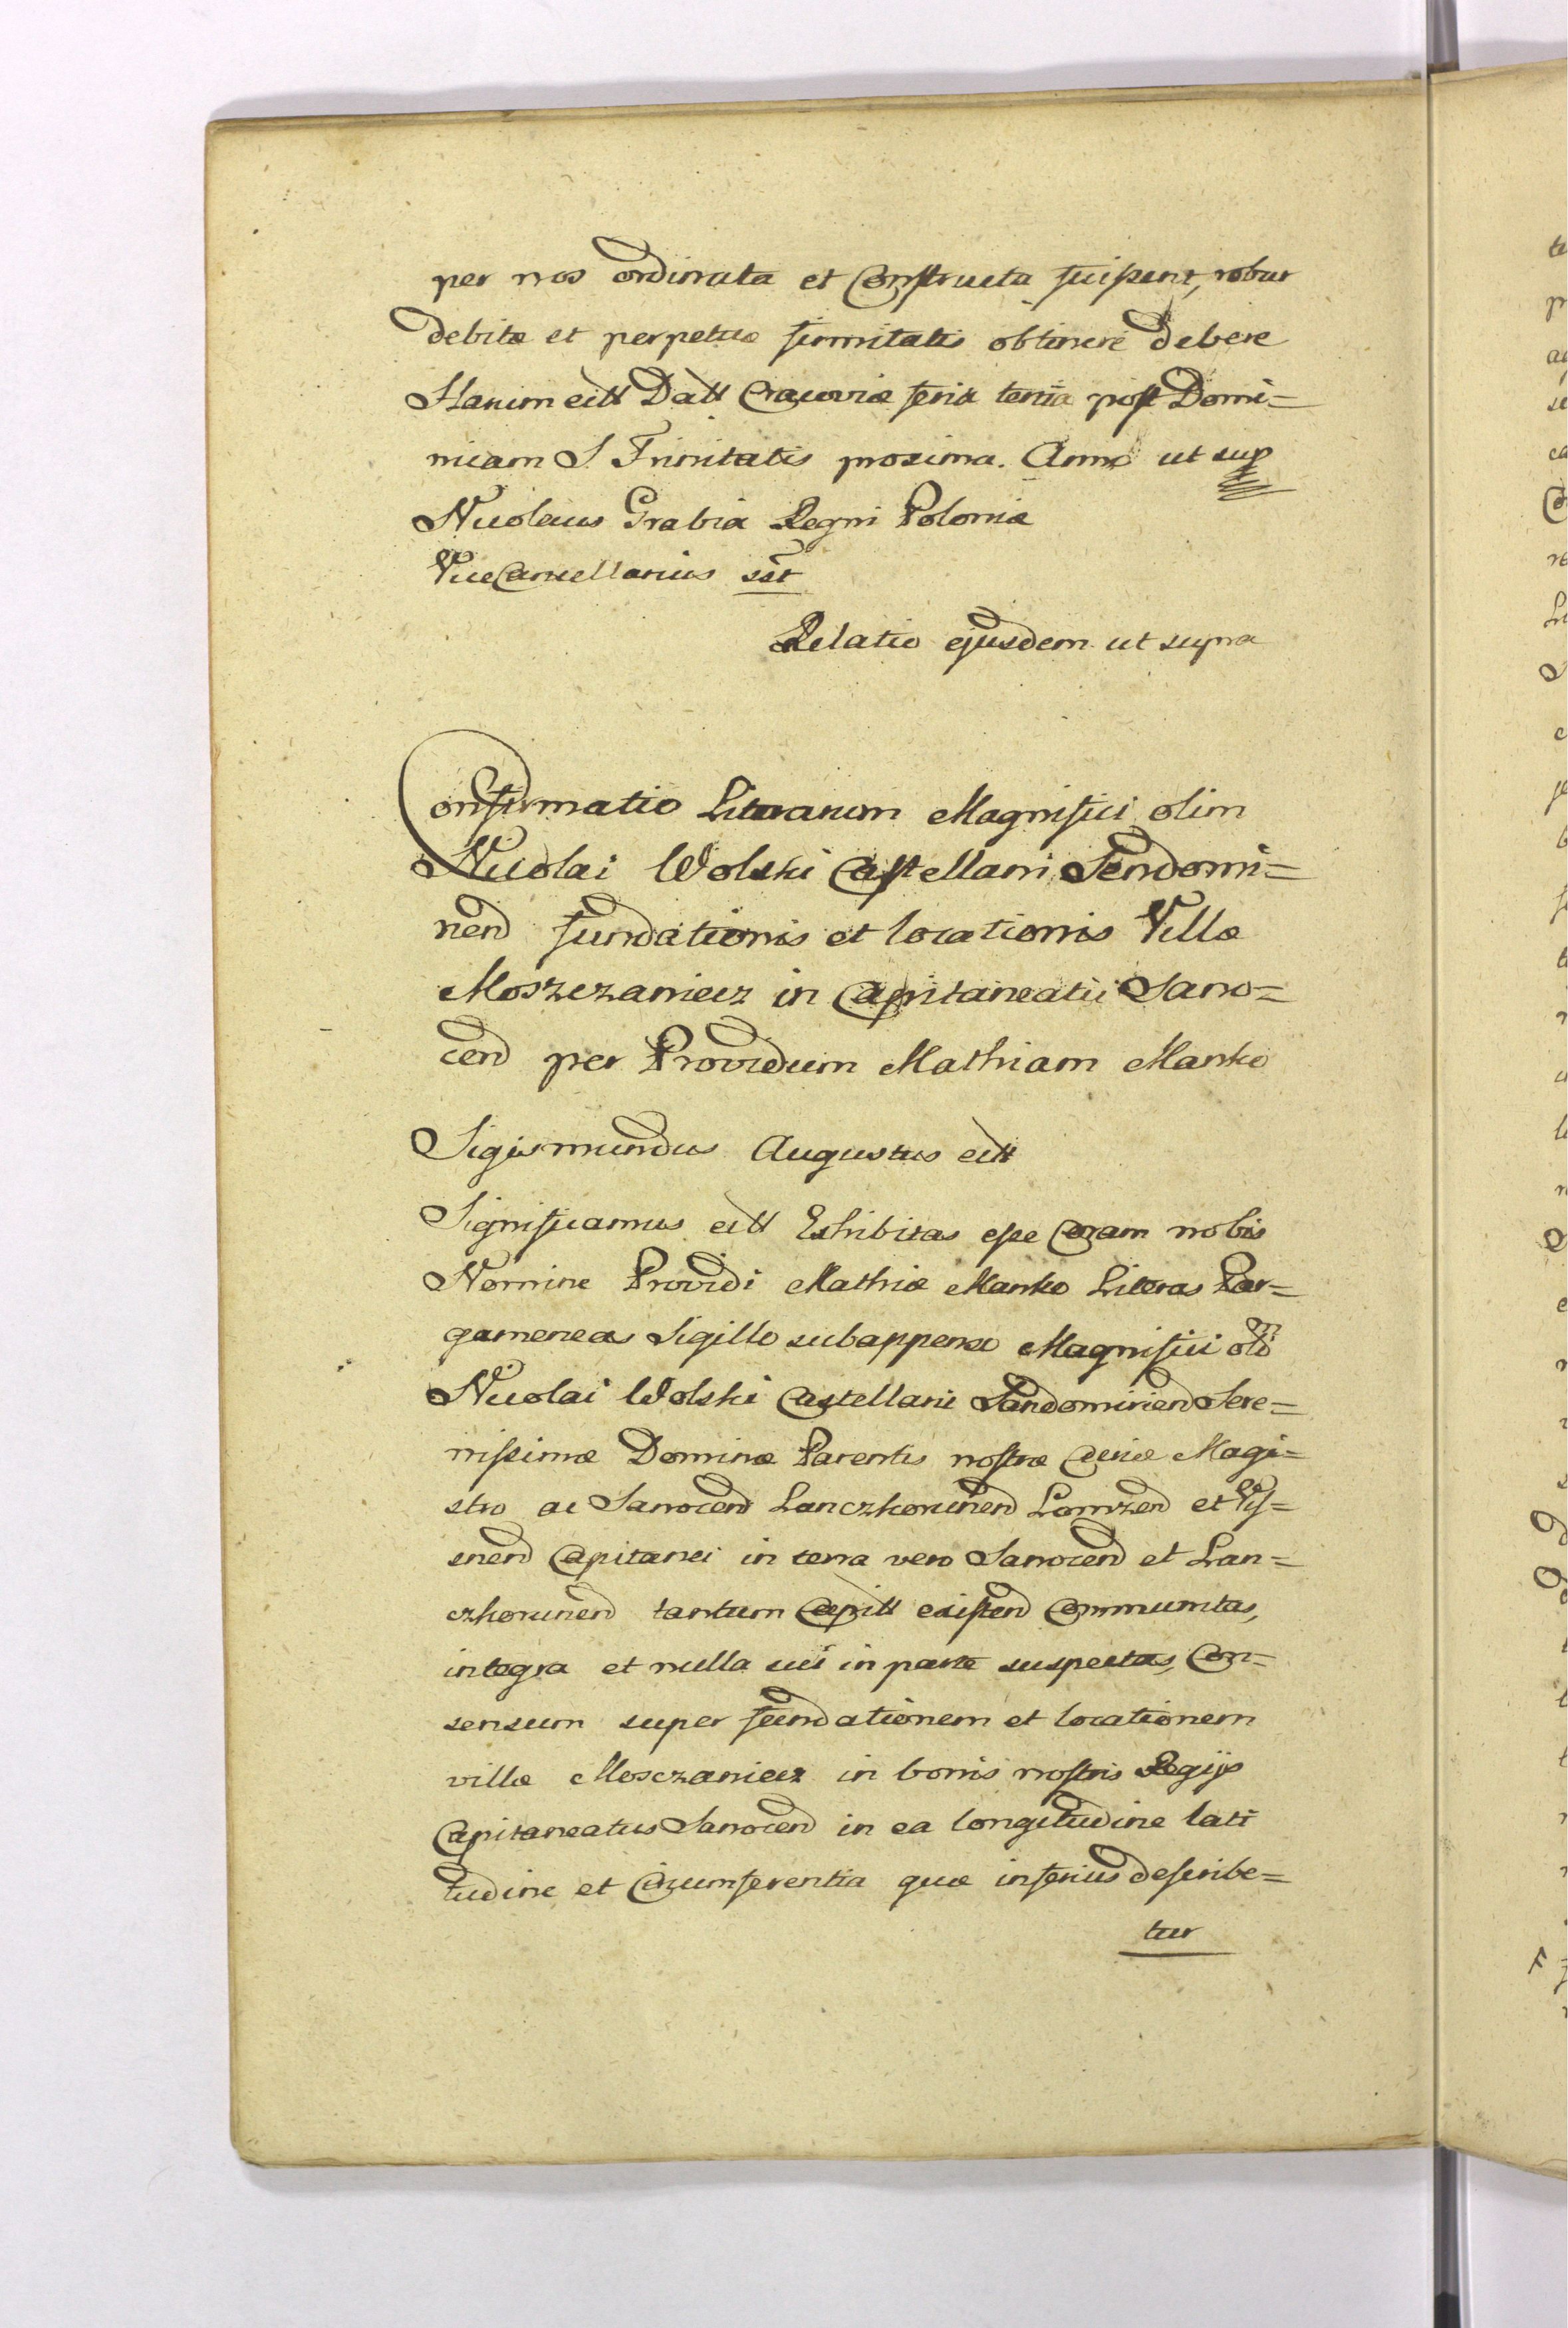 per nos ordinata et Constructa fuissent, robur
debitæ et perpetuæ firmitatis obtinere debere
Harum ettt Datt Cracoviæ feria tertia post Domi=
nicam S. Trinitatis proxima. Anno ut sup
Nicolaus Grabia Regni Poloniæ
ViceCancellarius sst
Relatio ejusdem ut supra
Confirmatio Literarum Magnifici olim
Nicolai Wolski Castellani Sendomi=
rien fundationis et locationis Villæ
Moszczaniecz in Capitaneatu Sano=
cen per Providum Mathiam Manko
Sigismundus Augustus ettt
Significamus ettt Exhibitas esse Coram nobis
Nomine Providi Mathiæ Manko Literas Par=
gameneas Sigillo subappenso Magnifici olim
Nicolai Wolski Castellani Sandomirien Sere=
nissimæ Dominæ Parentis nostræ Curiæ Magi=
stro ac Sanocen Lanczkorunen Lomzen et Vis=
snen Capitanei in terra vero Sanocen et Lan=
czkorunen tantum Capitt existen Communitas,
integra et nulla sui in parte suspectas, Con=
sensum super fundationem et locationem
villæ Mosczaniecz in bonis nostris Regijs
Capitaneatus Sanocen in ea longitudine lati
tudine et Circumferentia quæ inferius describe=
tur